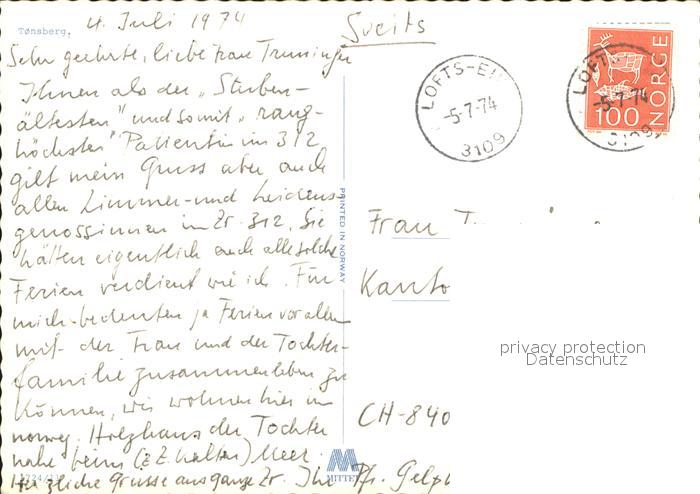 4. Juli 1974
Sveits
Tønsberg,
Sehr geehrte, liebe Frau Truninger
Ihnen als der „Stuben-
ältesten" und somit „rang-
höchsten" Patientin im 312
gilt mein Gruss aber auch
allen Zimmer- und Leidens-
genossinnen im Zr. 312. Sie
hätten eigentlich auch alle solche
Ferien verdient wie ich. Für
mich bedeuten ja Ferien vor allem
mit der Frau und der Tochter-
familie zusammenleben zu
können, wir wohnen hier im
norweg. Holzhaus der Tochter
nahe beim (z.Z. kalten) Meer.
Herzliche Grüsse ans ganze Zr. Ihr Pfr.
PRINTED IN NORWAY
MITTET
LOFTS-EI
-5-7-74
3109
LOFT
-5-7-74
3109
NORGE
100
Frau
Kanto
CH-840
privacy protection
Datenschutz